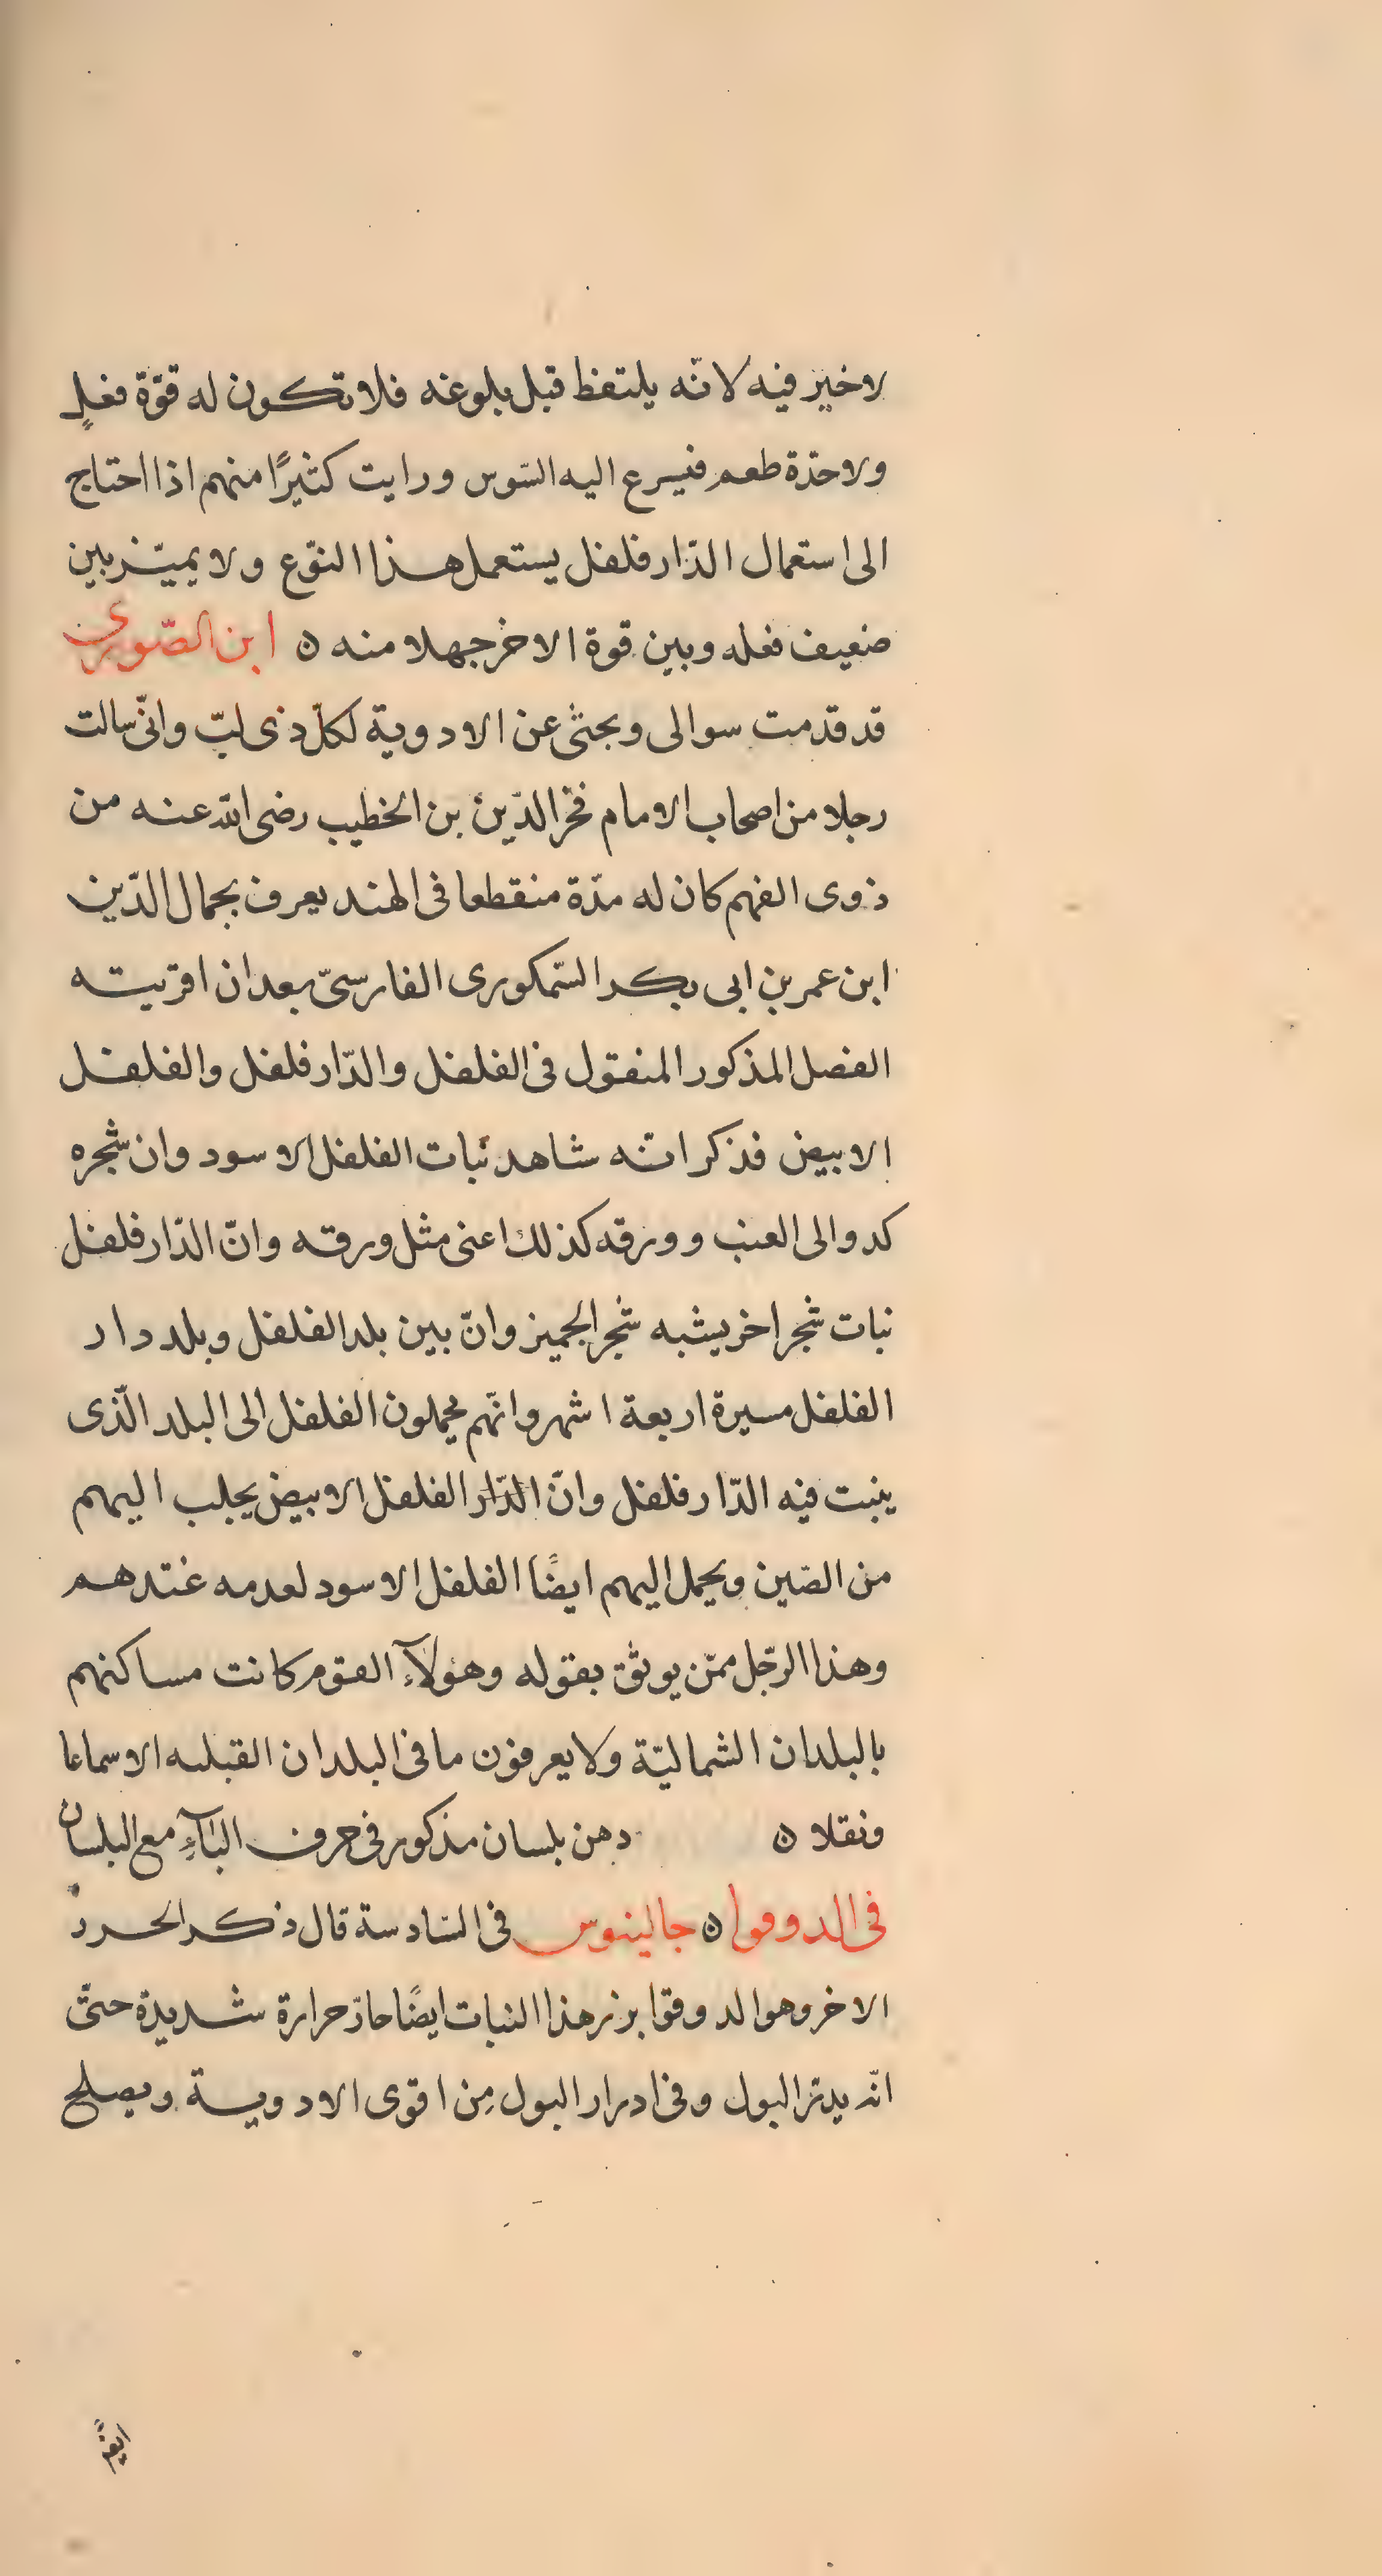 لا خير فيه لانّه يلتقط قبل بلوغه فلا تكون له قوّة فعلٍ
ولا حدّة طعم فيسرع اليه السّوس ورايت كثيرًا منهم اذا احتاج
الى استعمال الدّار فلفل يستعمل هذا النوّع ولا يميّز بين
ضعيف فعله وبين قوة الاخر جهلا منه ٥ ابن الصّورى
قد قدمت سوالى وبحثى عن الادوية لكلّ ذى لبّ وانّى سالت
رجلا من اصحاب الامام فخر الدّين بن الخطيب رضى الله عنه من
ذوى الفهم كان له مدّة منقطعا فى الهند يعرف بجمال الدّين
ابن عمر بن ابى بكر السّمكورى الفارسىّ بعد ان اقريته
الفصل المذكور المنقول فى الفلفل والدّار فلفل والفلفل
الابيض فذكر انّه شاهد نبات الفلفل الاسود وان شجره
كدوالى العنب وورقه كذلك اعنى مثل ورقه وانّ الدّار فلفل
نبات شجر اخر يشبه شجر الجميز وانّ بين بلد الفلفل وبلد دار
الفلفل مسيرة اربعة اشهر وانّهم يحملون الفلفل الى البلد الّذى
ينبت فيه الدّار فلفل وانّ الدّار الفلفل الابيض يجلب اليهم
من الصّين ويحمل اليهم ايضًا الفلفل الاسود لعدمه عندهم
وهذا الرّجل ممّن يوثق بقوله وهولآء القوم كانت مساكنهم
بالبلدان الشماليّة ولا يعرفون ما فى البلدان القبليه الا سماعا
ونقلا ٥ دهن بلسان مذكور فى حرف البآء مع البلسان
فى الدوقوا ٥ جالينوس فى السّادسة قال ذكر الحرد
الاخر وهو الدوقوا بزر هذا النبات ايضًا حادّ حرارة شديدة حتّى
انّه يدرّ البول وفى ادرار البول مِن اقوى الادوية ويصلح
ايضًا